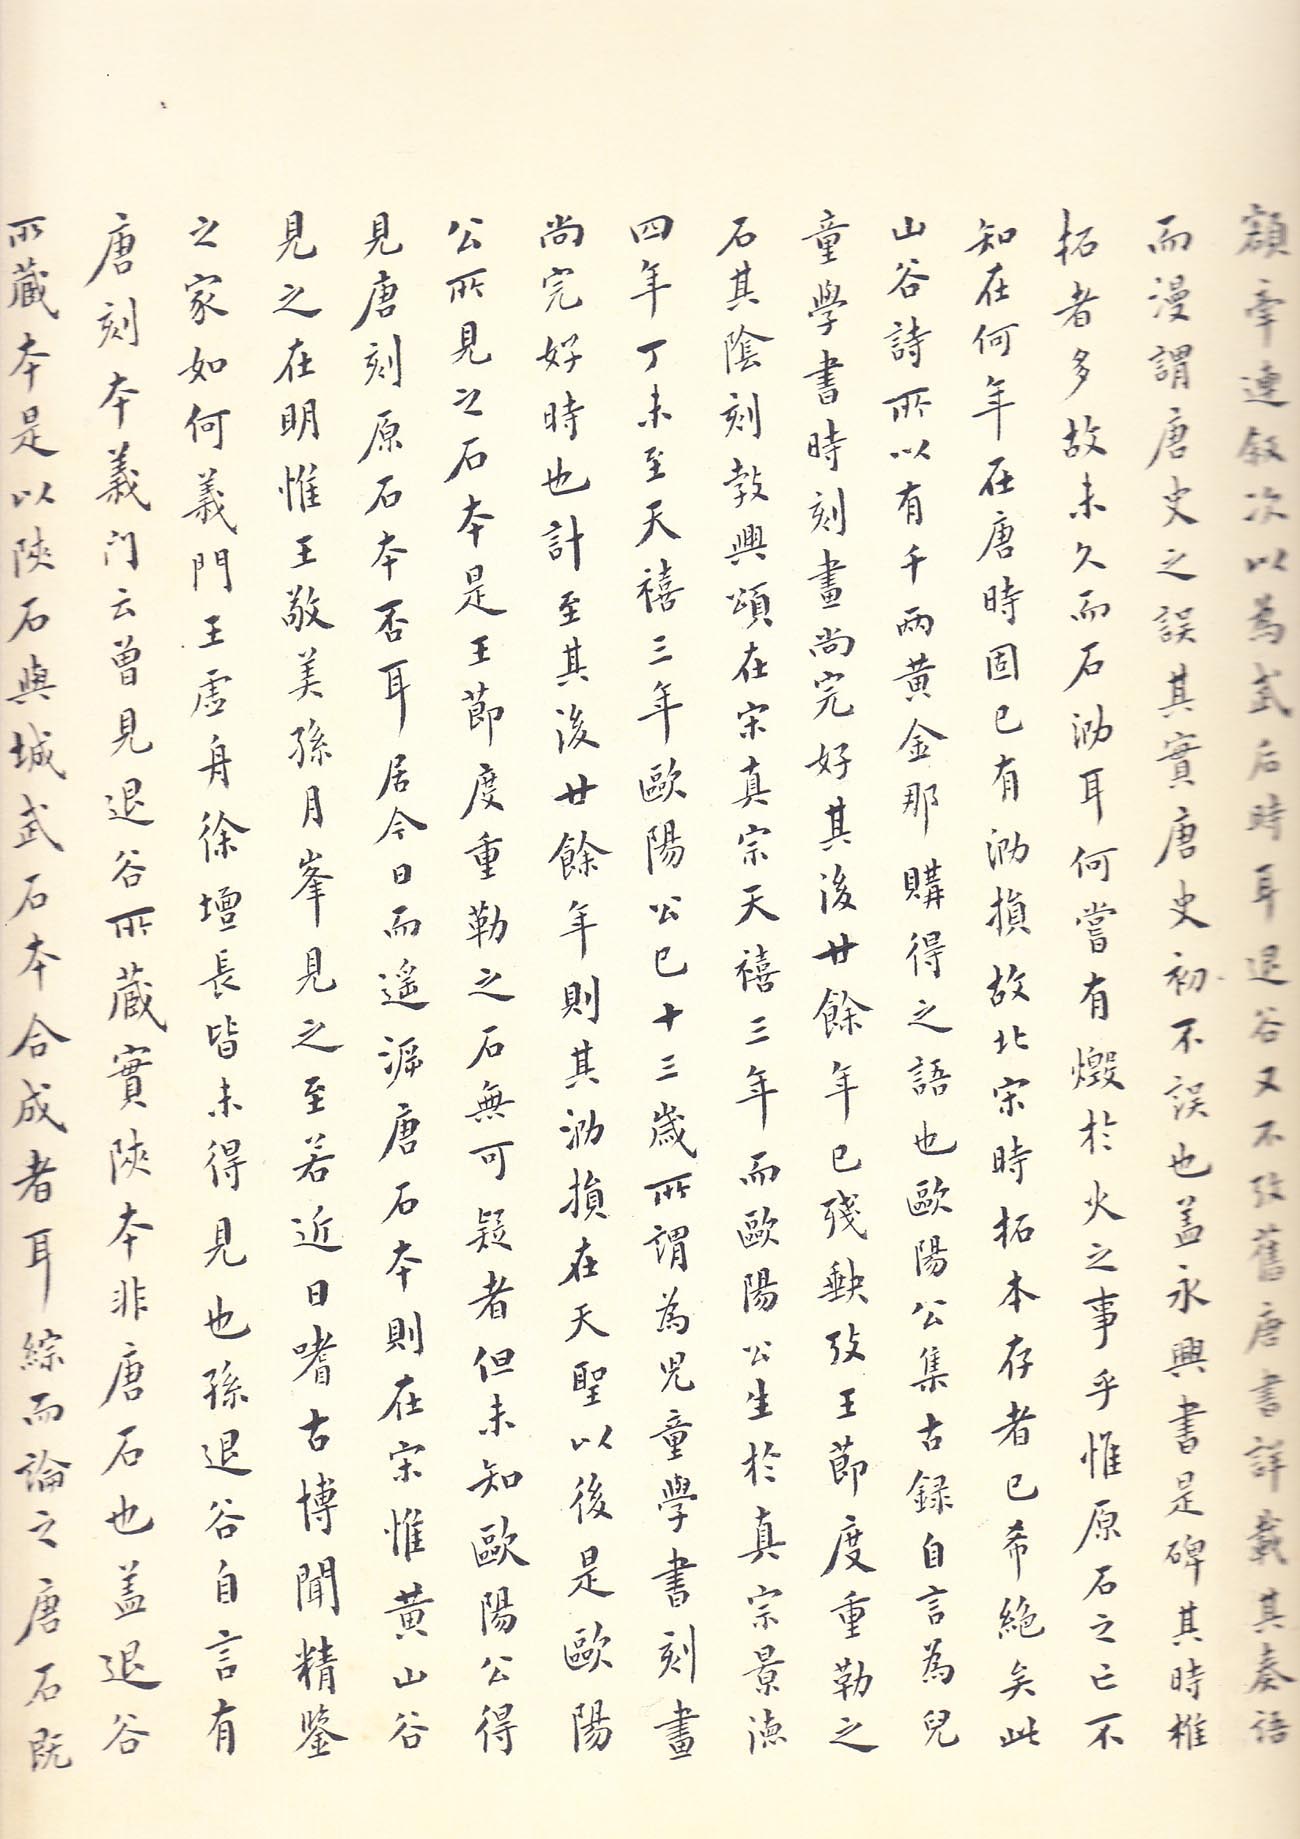 額牽連敘次以為武后時耳退谷又不攷舊唐書詳載其奏語
而漫謂唐史之誤其實唐史初不誤也盖永興書是碑其時椎
拓者多故未久而石泐耳何嘗有燬於火之事乎惟原石之亡不
知在何年在唐時固已有泐損故北宋時拓本存者已希絕矣此
山谷詩所以有千兩黃金那購得之語也歐陽公集古録自言為兒
童學書時刻畫尚完好其後廿餘年已殘缺攷王節度重勒之
石其陰刻敎興頌在宋真宗天禧三年而歐陽公生於真宗景德
四年丁未至天禧三年歐陽公已十三歲所謂為児童學書刻畫
尚完好時也計至其後廿餘年則其泐損在天聖以後是歐陽
公所見之石本是王節度重勒之石無可疑者但未知歐陽公得
見唐刻原石本否耳居今日而遥溯唐石本則在宋惟黃山谷
見之在明惟王敬美孫月峯見之至若近日嗜古博聞精鑒
之家如何義門王虛舟徐壇長皆未得見也孫退谷自言有
唐刻本義门云曾見退谷所藏實陝本非唐石也盖退谷
所藏本是以陝石與城武石本合成者耳綜而論之唐石既